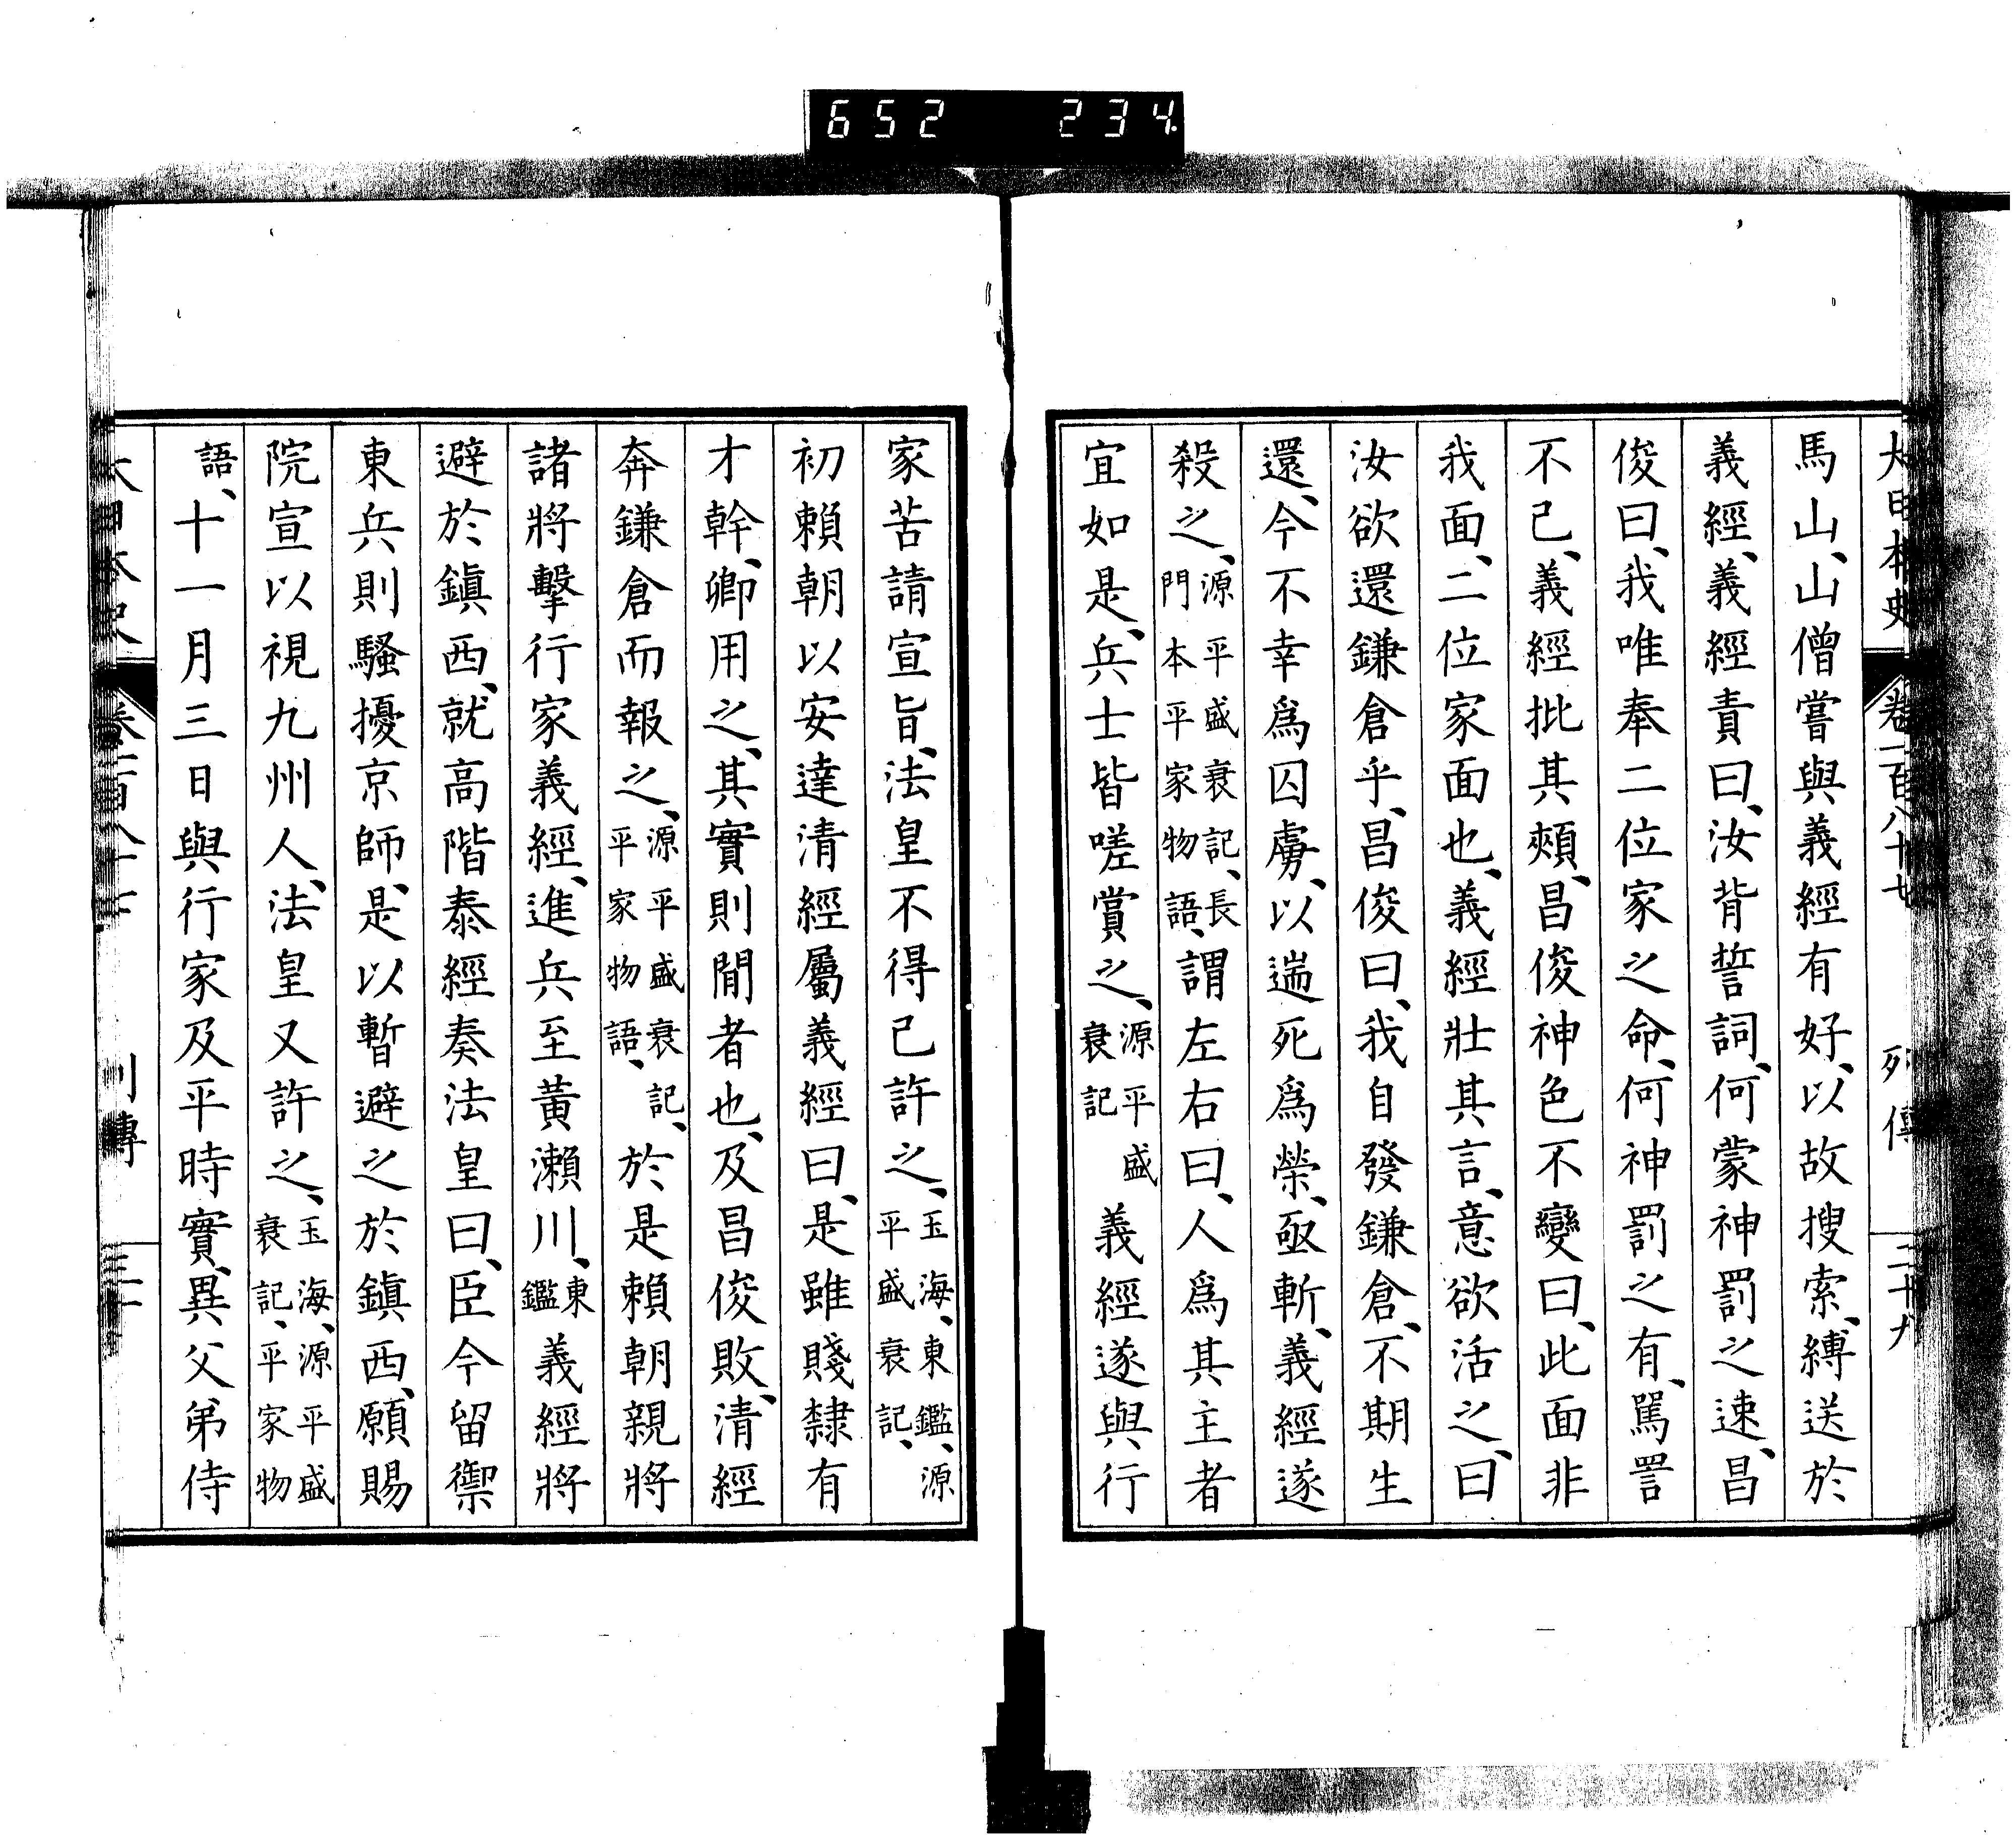 652 234
大日本史 卷一百八十七 列傳 二十九
馬山、山僧嘗與義經有好、以故搜索、縛送於
義經、義經責曰、汝背誓詞、何蒙神罰之速、昌
俊曰、我唯奉二位家之命、何神罰之有、罵詈
不已、義經批其頰、昌俊神色不變曰、此面非
我面、二位家面也、義經壯其言、意欲活之、曰
汝欲還鎌倉乎、昌俊曰、我自發鎌倉、不期生
還、今不幸爲囚虜、以遄死爲榮、亟斬、義經遂
殺之、源平盛衰記、長門本平家物語、謂左右曰、人爲其主者
宜如是、兵士皆嗟賞之、源平盛衰記義經遂與行
家苦請宣旨、法皇不得已許之、玉海、東鑑、源平盛衰記、
初賴朝以安達清經屬義經曰、是雖賤隸有
才幹、卿用之、其實則間者也、及昌俊敗、清經
奔鎌倉而報之、源平盛衰記、平家物語、於是賴朝親將
諸將擊行家義經、進兵至黃瀨川、東鑑義經將
避於鎭西、就高階泰經奏法皇曰、臣今留禦
東兵則騷擾京師、是以暫避之於鎭西、願賜
院宣以視九州人、法皇又許之、玉海、源平盛衰記、平家物
語、十一月三日與行家及平時實、異父弟侍
大日本史 卷一百八十七 列傳 三十